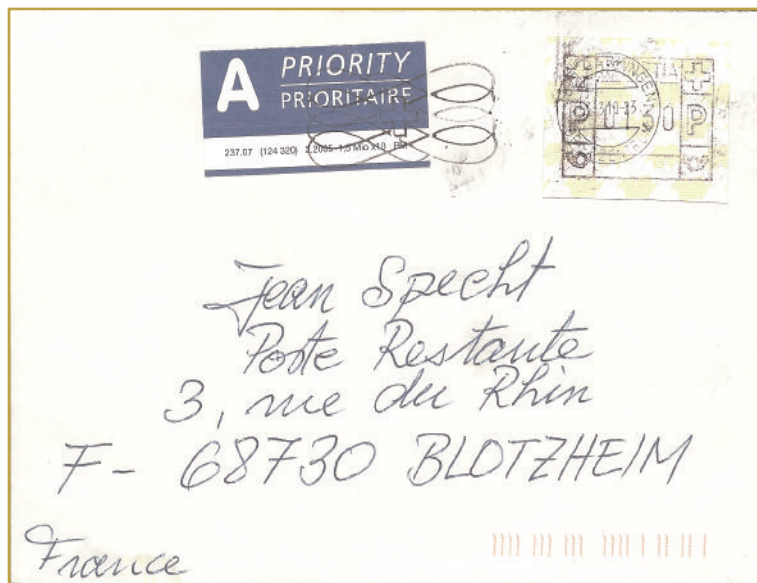 A PRIORITY
PRIORITAIRE
237.07 (124 320) 2.2005-1,5 Mio x10 PM
Jean Specht
Poste Restante
3, rue du Rhin
F- 68730 BLOTZHEIM
France